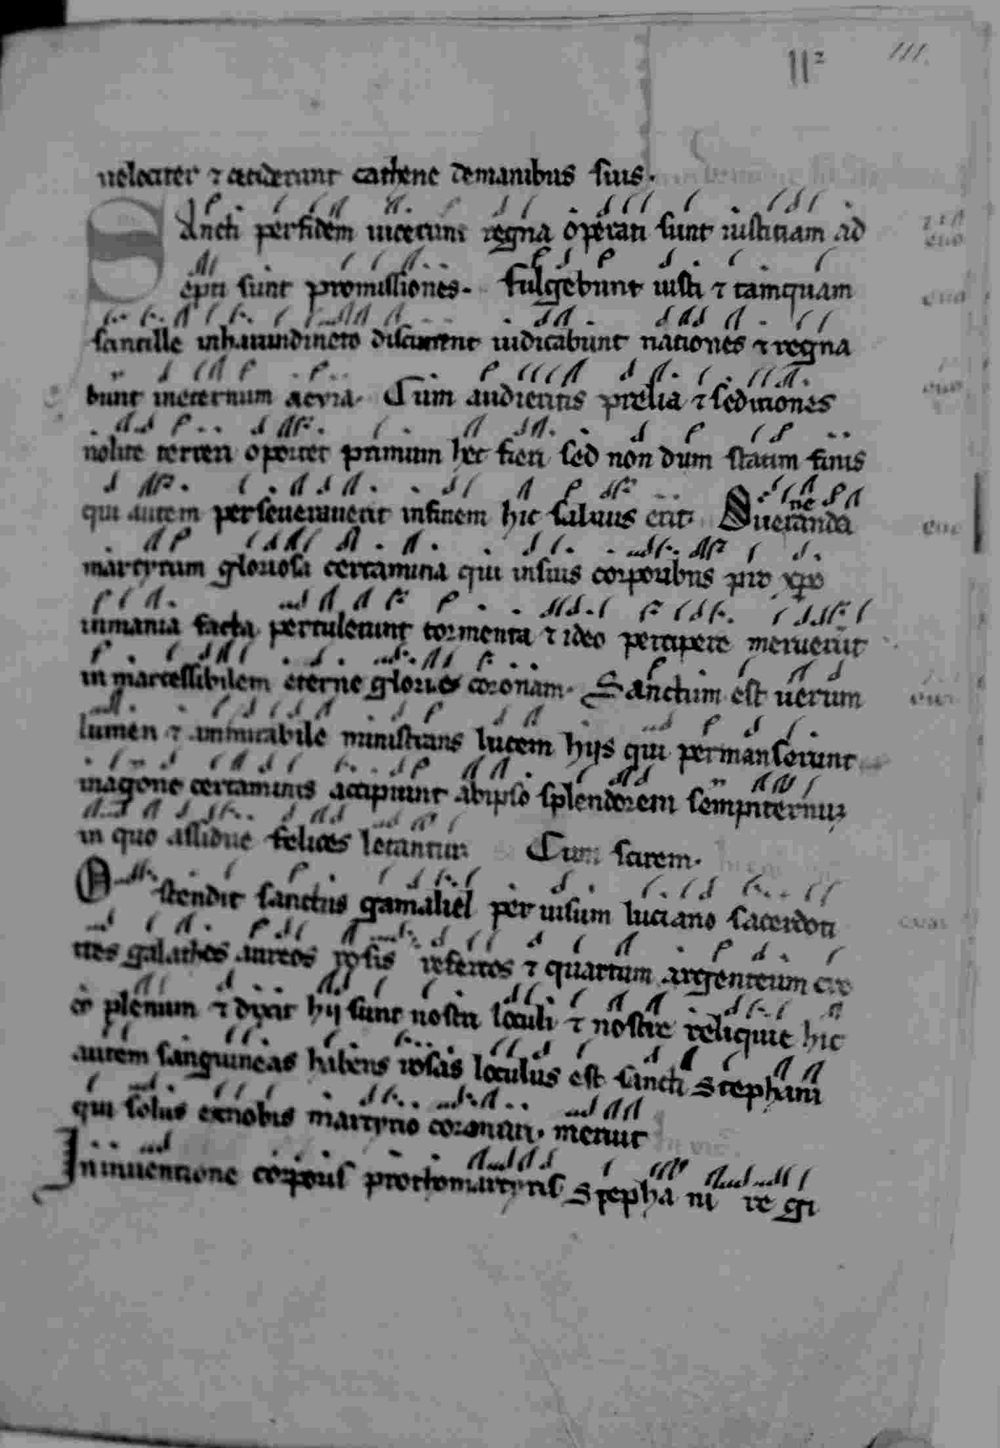 II² III.
uelociter ⁊ ceciderunt cathene demanibus suis.
Sancti perfidem uicerunt regna operati sunt iusticiam ad
epti sunt promissiones. Fulgebunt iusti ⁊ tamquam
scintille inharundineto discurrent iudicabunt nationes ⁊ regna
bunt ineternum aeuia. Cum audieritis prelia ⁊ seditiones
nolite terreri oportet primum hec fieri sed non dum statim finis
qui autem perseuerauerit infinem hic saluus erit. Ueneranda
martyrum gloriosa certamina qui insuis corporibus pro xpo
inmania facta pertulerunt tormenta ⁊ ideo percipere meruerūt
in marcessibilem eterne glorie coronam. Sanctum est uerum
lumen ⁊ ammirabile ministrans lucem hijs qui permanserunt
inagone certaminis accipiunt abipso splendorem sempiternuȝ
in quo assidue felices letantur. Cum scirem.
Ostendit sanctus gamaliel per uisum luciano sacerdoti
tres galathos aureos rosis refertos ⁊ quartum argenteum cro
co plenum ⁊ dixit hij sunt nostri loculi ⁊ nostre reliquie hic
autem sanguineas habens rosas loculus est sancti stephani
qui solus exnobis martyrio coronari. meruit
In inuentione corporis prothomartyris stepha ni re gi